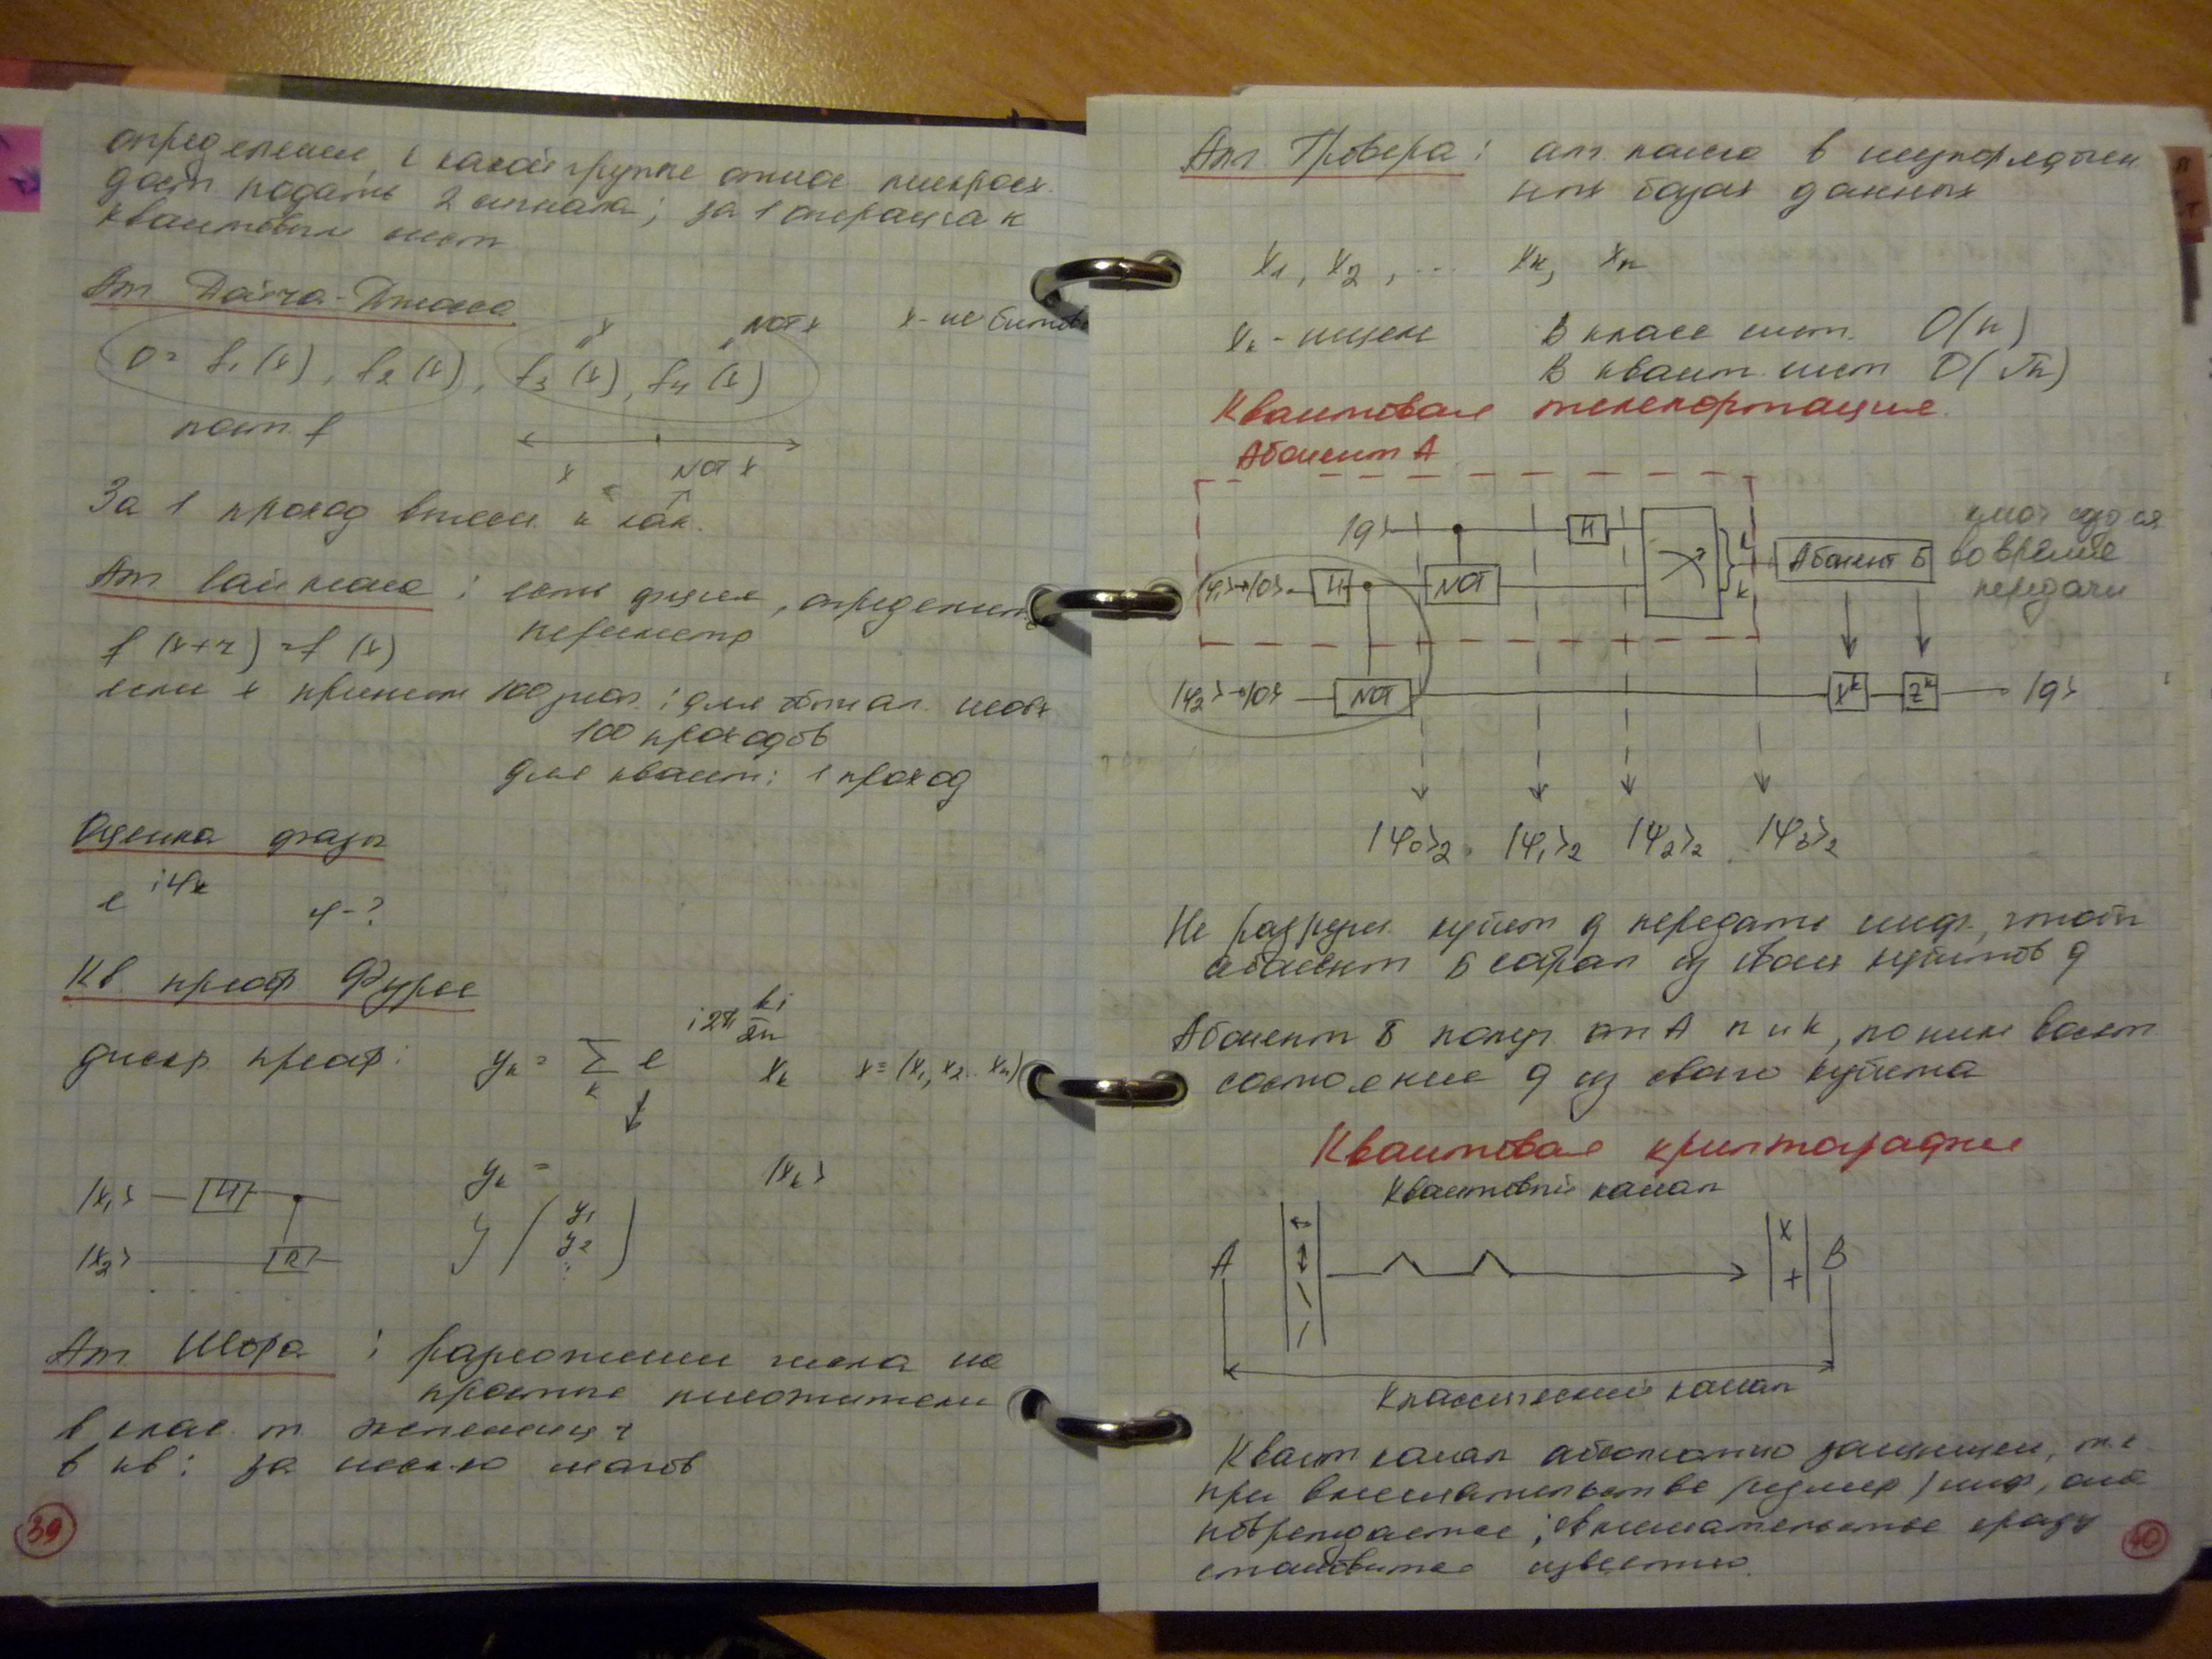 определении, к какой группе относ. микросх.
дост. подать 2 сигнала; за 1 операция к
квантовым сист
Алг Дойча-Джоса
x NOT x x - не битов
0= f₁(x), f₂(x), f₃(x), f₄(x)
пост. f
x NOT x
За 1 проход выясн. к как.
Алг Саймона : есть функция, определить
периметр
f (x+r) = f (x)
если x принит 100 знач. : для обычн. необх
100 проходов
для квант: 1 проход
Оценка фазы
e^{iφx} φ-?
Кв. преобр Фурье
дискр преобр: yₖ = Σₖ e^{i2π kj/2n} xₖ x = (x₁, x₂.. xₙ)
yₖ = |xₖ⟩
|x₁⟩ H
y ( y₁
y₂
⋮ )
|x₂⟩ R
Алг Шора : разложении числа на
простые множители
в клас. т. экспоненц
в кв: за неск-ко шагов
39
Алг. Гровера : алг. поиска в неупорядочен
ных базах данных
x₁, x₂, ... xₖ, xₙ
xₖ - ищем В класс сист. O(n)
В квант. сист O(√n)
Квантовая телепортация
Абонент А
|q⟩ H
|φ₁⟩→|0⟩ H NOT k Абонент Б
во время
передачи
|φ₂⟩→|0⟩ NOT Xᵏ Zᵏ |q⟩
|φ₀⟩₂ |φ₁⟩₂ |φ₂⟩₂ |φ₃⟩₂
Не разруш. кубит q передать инф, чтобы
абонент Б собрал из своих кубитов q
Абонент Б получ. от А n и k, по ним восст
состояние q из своего кубита
Квантовая криптография
Квантовый канал
A x + B
Классический канал
Квант канал абсолютно защищен, т.к.
при вмешательстве (измер) инф, она
повреждается; вмешательство сразу
становится известно.
40